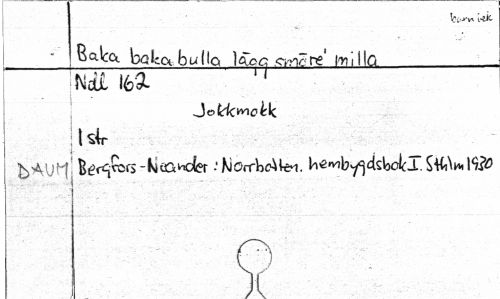 barnlek
Baka baka bulla lägg smöre' milla
Ndl 162
Jokkmokk
1 str
DAUM Bergfors-Neander: Norrbotten. hembygdsbok I. Sthlm 1930